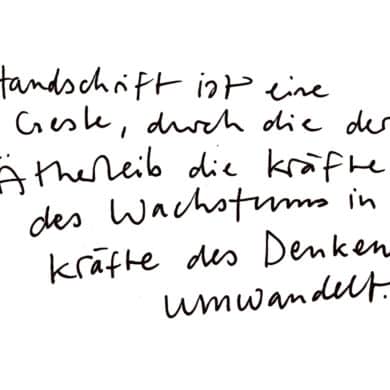 Handschrift ist eine
Geste, durch die der
Ätherleib die Kräfte
des Wachstums in
Kräfte des Denken
umwandelt.